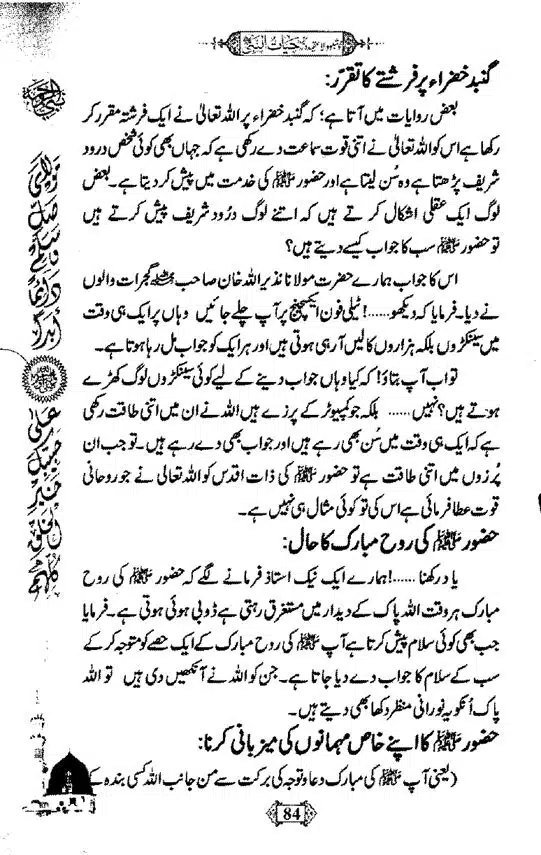 حیات النبی
گنبد خضراء پر فرشتے کا تقرّر:
بعض روایات میں آتا ہے؛ کہ گنبد خضراء پر اللہ تعالیٰ نے ایک فرشتہ مقرر کر
رکھا ہے اس کو اللہ تعالیٰ نے اتنی قوت سماعت دے رکھی ہے کہ جہاں بھی کوئی شخص درود
شریف پڑھتا ہے وہ سُن لیتا ہے اور حضور ﷺ کی خدمت میں پیش کر دیتا ہے۔ بعض
لوگ ایک عقلی اشکال کرتے ہیں کہ اتنے لوگ درُود شریف پیش کرتے ہیں
تو حضور ﷺ سب کا جواب کیسے دیتے ہیں؟
اس کا جواب ہمارے حضرت مولانا نذیر اللہ خان صاحب گجرات والوں
نے دیا۔ فرمایا کہ دیکھو......! ٹیلی فون ایکسچینج پر آپ چلے جائیں وہاں پر ایک ہی وقت
میں سینکڑوں بلکہ ہزاروں کالیں آرہی ہوتی ہیں اور ہر ایک کو جواب مل رہا ہوتا ہے۔
تو اب آپ بتاؤ! کہ کیا وہاں جواب دینے کے لیے کوئی سینکڑوں لوگ کھڑے
ہوتے ہیں؟ نہیں...... بلکہ جو کمپیوٹر کے پرزے ہیں اللہ نے ان میں اتنی طاقت رکھی
ہے کہ ایک ہی وقت میں سُن بھی رہے ہیں اور جواب بھی دے رہے ہیں۔ تو جب ان
پُرزوں میں اتنی طاقت ہے تو حضور ﷺ کی ذات اقدس کو اللہ تعالیٰ نے جو روحانی
قوت عطا فرمائی ہے اس کی تو کوئی مثال ہی نہیں ہے۔
حضور ﷺ کی روح مبارک کا حال:
یاد رکھنا......! ہمارے ایک نیک استاذ فرمانے لگے کہ حضور ﷺ کی روح
مبارک ہر وقت اللہ پاک کے دیدار میں مستغرق رہتی ہے ڈوبی ہوئی ہوتی ہے۔ فرمایا
جب بھی کوئی سلام پیش کرتا ہے آپ ﷺ کی روح مبارک کے ایک حصے کو متوجہ کر کے
سب کے سلام کا جواب دے دیا جاتا ہے۔ جن کو اللہ نے آنکھیں دی ہیں تو اللہ
پاک اُنکو یہ نورانی منظر دکھا بھی دیتے ہیں۔
حضور ﷺ کا اپنے خاص مہمانوں کی میزبانی کرنا:
(یعنی آپ ﷺ کی مبارک دعا و توجہ کی برکت سے من جانب اللہ کسی بندہ کے
84
مولای صل وسلم دائما أبدا
على حبيبك خير الخلق كلهم